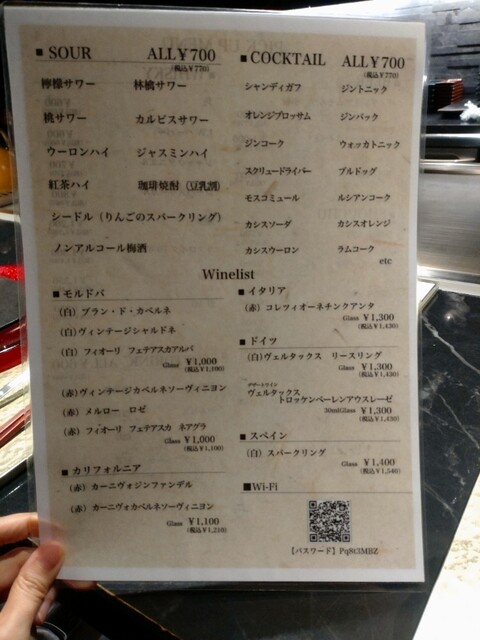 ■ SOUR ALL¥700
(税込¥770)
檸檬サワー 林檎サワー
桃サワー カルピスサワー
ウーロンハイ ジャスミンハイ
紅茶ハイ 珈琲焼酎（豆乳割）
シードル（りんごのスパークリング）
ノンアルコール梅酒
■ COCKTAIL ALL¥700
(税込¥770)
シャンディガフ ジントニック
オレンジブロッサム ジンバック
ジンコーク ウォッカトニック
スクリュードライバー ブルドッグ
モスコミュール ルシアンコーク
カシスソーダ カシスオレンジ
カシスウーロン ラムコーク
etc
Winelist
■ モルドバ
（白）ブラン・ド・カベルネ
（白）ヴィンテージシャルドネ
（白）フィオーリ フェテアスカアルバ
Glass ¥1,000
(税込¥1,100)
（赤）ヴィンテージカベルネソーヴィニヨン
（赤）メルロー ロゼ
（赤）フィオーリ フェテアスカ ネアグラ
Glass ¥1,000
(税込¥1,100)
■ カリフォルニア
（赤）カーニヴォジンファンデル
（赤）カーニヴォカベルネソーヴィニヨン
Glass ¥1,100
(税込¥1,210)
■ イタリア
（赤）コレフィオーネチンクアンタ
Glass ¥1,300
(税込¥1,430)
■ ドイツ
（白）ヴェルタックス リースリング
Glass ¥1,300
(税込¥1,430)
デザートワイン
ヴェルタックス
トロッケンベーレンアウスレーゼ
30mlGlass ¥1,300
(税込¥1,430)
■ スペイン
（白）スパークリング
Glass ¥1,400
(税込¥1,540)
■Wi-Fi
【パスワード】Pq8t3MBZ